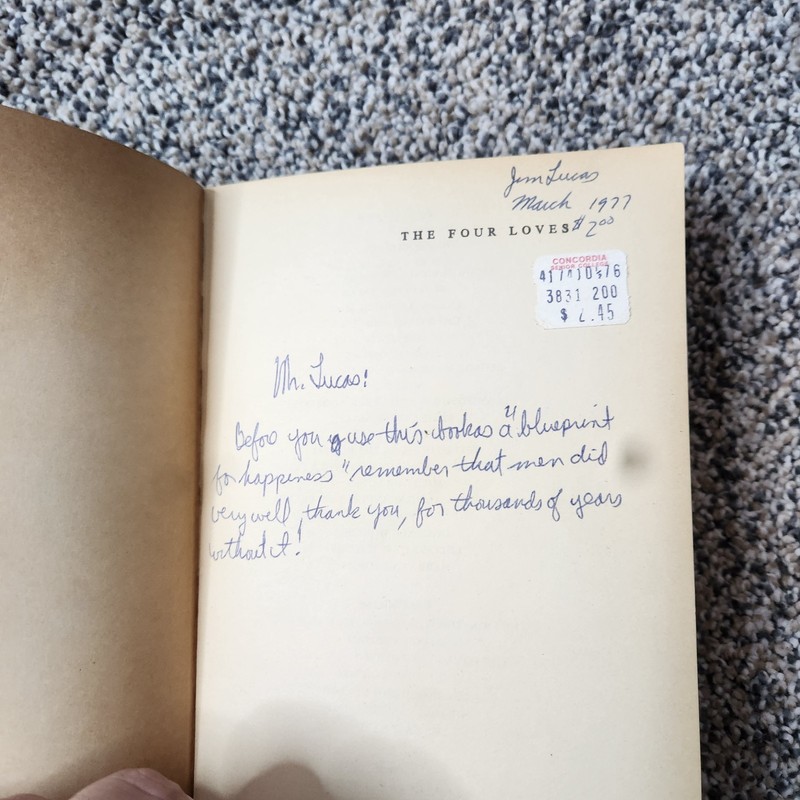 Jim Lucas
March 1977
THE FOUR LOVES $2.00
CONCORDIA
SENIOR COLLEGE
3831 200
$ 2.45
Mr. Lucas!
Before you use this book as "a blueprint
for happiness" remember that men did
very well, thank you, for thousands of years
without it!